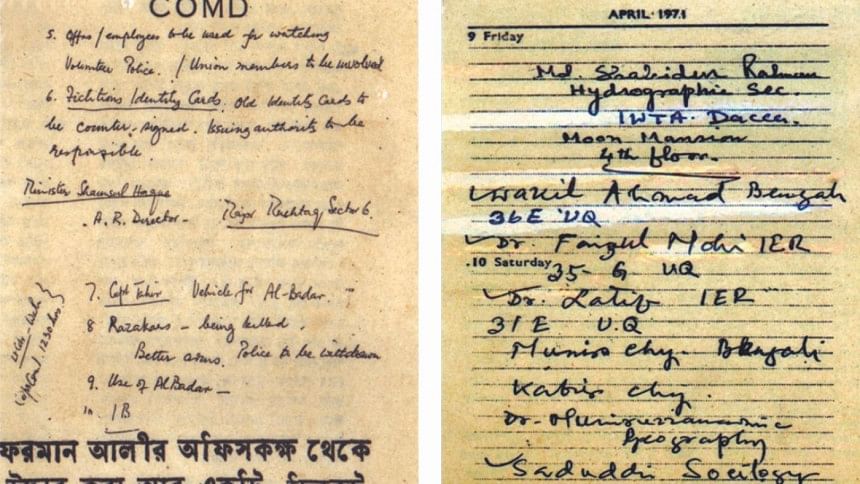 COMD
5. Offrs / employees to be used for watching
Volunteer Police. / Union members to be involved
6. Fictitious Identity Cards. Old Identity Cards to
be counter-signed. Issuing authority to be
responsible.
Minister Shamsul Haque
A.R. Director - Major Mushtaq Sector 6.
7. Capt Tahir Vehicle for Al-Badar.
8 Razakars - being killed.
Better arms. Police to be withdrawn
9. Use of Al Badar -
10 IB
ফরমান আলীর অফিসকক্ষ থেকে
APRIL 1971
9 Friday
Md. Rahman
Hydrographic Sec.
IWTA. Dacca.
Moon Mansion
4th floor.
Wakil Ahmad Bengali
36E UQ
Dr. Faizul Mohi IER
10 Saturday
35-G UQ
Dr. Latif IER
31E U.Q
Munir Chy. Bengali
Kabir Chy.
Dr.
Geography
Saduddin Sociology